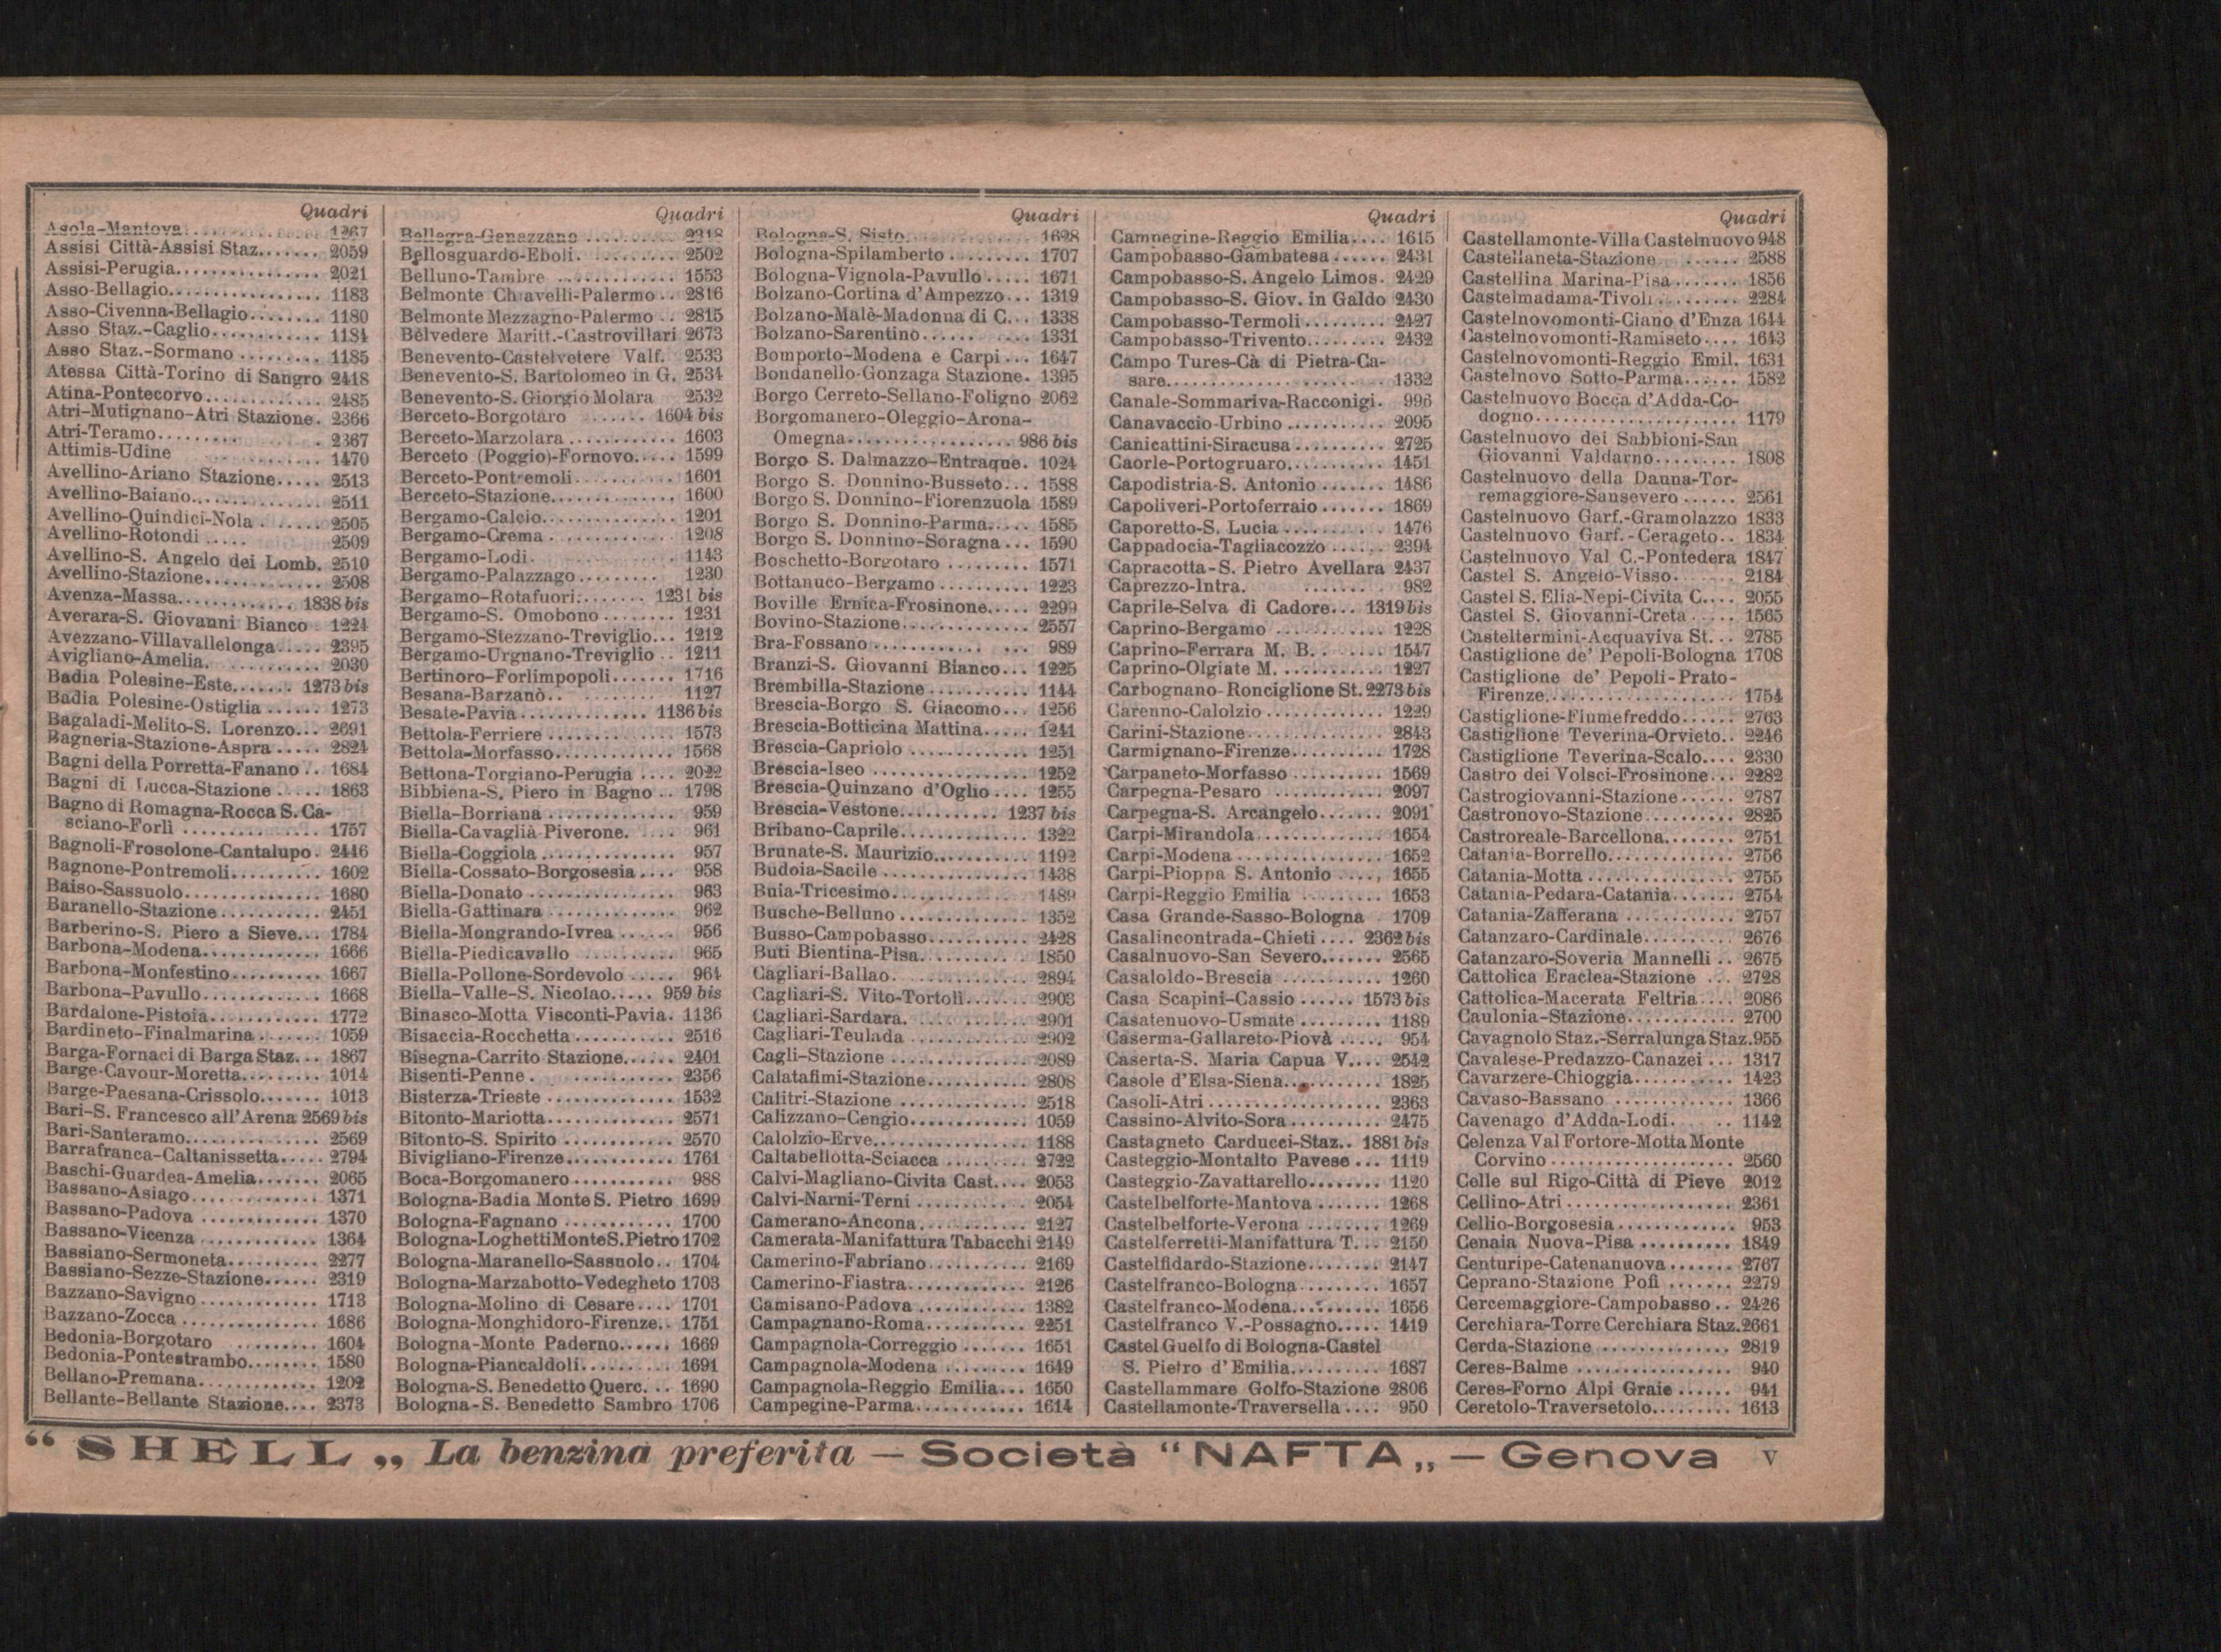 Quadri
Asola-Mantova 1267
Assisi Città-Assisi Staz....... 2059
Assisi-Perugia................ 2021
Asso-Bellagio................ 1183
Asso-Civenna-Bellagio........ 1180
Asso Staz.-Caglio............ 1184
Asso Staz.-Sormano ......... 1185
Atessa Città-Torino di Sangro 2418
Atina-Pontecorvo............ 2485
Atri-Mutignano-Atri Stazione. 2366
Atri-Teramo......... . 2367
Attimis-Udine ............ 1470
Avellino-Ariano Stazione..... 2513
Avellino-Baiano............. 2511
Avellino-Quindici-Nola . ...... 2505
Avellino-Rotondi ..... 2509
Avellino-S. Angelo dei Lomb. 2510
Avellino-Stazione............ 2508
Avenza-Massa............. 1838 bis
Averara-S. Giovanni Bianco 1224
Avezzano-Villavallelonga..... 2395
Avigliano-Amelia. .......... 2030
Badia Polesine-Este....... 1273 bis
Badia Polesine-Ostiglia ...... 1273
Bagaladi-Melito-S. Lorenzo... 2691
Bagneria-Stazione-Aspra ..... 2824
Bagni della Porretta-Fanano .. 1684
Bagni di Lucca-Stazione ..... 1863
Bagno di Romagna-Rocca S. Ca-
sciano-Forlì .............. 1757
Bagnoli-Frosolone-Cantalupo. 2446
Bagnone-Pontremoli.......... 1602
Baiso-Sassuolo............... 1680
Baranello-Stazione........... 2451
Barberino-S. Piero a Sieve... 1784
Barbona-Modena............. 1666
Barbona-Monfestino.......... 1667
Barbona-Pavullo............. 1668
Bardalone-Pistoia............ 1772
Bardineto-Finalmarina....... 1059
Barga-Fornaci di Barga Staz... 1867
Barge-Cavour-Moretta......... 1014
Barge-Paesana-Crissolo....... 1013
Bari-S. Francesco all'Arena 2569 bis
Bari-Santeramo.............. 2569
Barrafranca-Caltanissetta..... 2794
Baschi-Guardea-Amelia....... 2065
Bassano-Asiago............. 1371
Bassano-Padova ............. 1370
Bassano-Vicenza ............ 1364
Bassiano-Sermoneta.......... 2277
Bassiano-Sezze-Stazione...... 2319
Bazzano-Savigno ............. 1713
Bazzano-Zocca ............... 1686
Bedonia-Borgotaro ......... 1604
Bedonia-Pontestrambo........ 1580
Bellano-Premana............. 1202
Bellante-Bellante Stazione.... 2373
Quadri
Bellegra-Genazzano .......... 2218
Bellosguardo-Eboli. .......... 2502
Belluno-Tambre ............ 1553
Belmonte Chiavelli-Palermo .. 2816
Belmonte Mezzagno-Palermo .. 2815
Belvedere Maritt.-Castrovillari 2673
Benevento-Castelvetere Valf. 2533
Benevento-S. Bartolomeo in G. 2534
Benevento-S. Giorgio Molara 2532
Berceto-Borgotaro ....... 1604 bis
Berceto-Marzolara ............ 1603
Berceto (Poggio)-Fornovo..... 1599
Berceto-Pontremoli........... 1601
Berceto-Stazione.............. 1600
Bergamo-Calcio............... 1201
Bergamo-Crema .............. 1208
Bergamo-Lodi. ............ 1143
Bergamo-Palazzago......... 1230
Bergamo-Rotafuori:....... 1231 bis
Bergamo-S. Omobono ........ 1231
Bergamo-Stezzano-Treviglio... 1212
Bergamo-Urgnano-Treviglio .. 1211
Bertinoro-Forlimpopoli....... 1716
Besana-Barzanò.. ......... 1127
Besate-Pavia .............. 1136 bis
Bettola-Ferriere .............. 1573
Bettola-Morfasso.............. 1568
Bettona-Torgiano-Perugia .... 2022
Bibbiena-S. Piero in Bagno .. 1798
Biella-Borriana .............. 959
Biella-Cavaglià Piverone. .... 961
Biella-Coggiola ............... 957
Biella-Cossato-Borgosesia .... 958
Biella-Donato ................ 963
Biella-Gattinara .............. 962
Biella-Mongrando-Ivrea ...... 956
Biella-Piedicavallo ......... 965
Biella-Pollone-Sordevolo ..... 964
Biella-Valle-S. Nicolao..... 959 bis
Binasco-Motta Visconti-Pavia. 1136
Bisaccia-Rocchetta........... 2516
Bisegna-Carrito Stazione...... 2401
Bisenti-Penne . ............ 2356
Bisterza-Trieste .............. 1532
Bitonto-Mariotta.............. 2571
Bitonto-S. Spirito ............ 2570
Bivigliano-Firenze............ 1761
Boca-Borgomanero........... 988
Bologna-Badia Monte S. Pietro 1699
Bologna-Fagnano ............ 1700
Bologna-Loghetti Monte S. Pietro 1702
Bologna-Maranello-Sassuolo.. 1704
Bologna-Marzabotto-Vedegheto 1703
Bologna-Molino di Cesare.... 1701
Bologna-Monghidoro-Firenze.. 1751
Bologna-Monte Paderno...... 1669
Bologna-Piancaldoli.......... 1691
Bologna-S. Benedetto Querc... 1690
Bologna-S. Benedetto Sambro 1706
Quadri
Bologna-S. Sisto............. 1628
Bologna-Spilamberto ......... 1707
Bologna-Vignola-Pavullo ..... 1671
Bolzano-Cortina d'Ampezzo... 1319
Bolzano-Malè-Madonna di C... 1338
Bolzano-Sarentino...... .... 1331
Bomporto-Modena e Carpi... 1647
Bondanello-Gonzaga Stazione. 1395
Borgo Cerreto-Sellano-Foligno 2062
Borgomanero-Oleggio-Arona-
Omegna.................. 986 bis
Borgo S. Dalmazzo-Entraque. 1024
Borgo S. Donnino-Busseto... 1588
Borgo S. Donnino-Fiorenzuola 1589
Borgo S. Donnino-Parma..... 1585
Borgo S. Donnino-Soragna ... 1590
Boschetto-Borgotaro ......... 1571
Bottanuco-Bergamo .......... 1223
Boville Ernica-Frosinone..... 2299
Bovino-Stazione.............. 2557
Bra-Fossano ............ ... 989
Branzi-S. Giovanni Bianco... 1225
Brembilla-Stazione ........... 1144
Brescia-Borgo S. Giacomo... 1256
Brescia-Botticina Mattina..... 1241
Brescia-Capriolo ............. 1251
Brescia-Iseo ................. 1252
Brescia-Quinzano d'Oglio .... 1255
Brescia-Vestone........... 1237 bis
Bribano-Caprile.............. 1322
Brunate-S. Maurizio.......... 1192
Budoia-Sacile ................ 1438
Buia-Tricesimo............... 1489
Busche-Belluno .............. 1352
Busso-Campobasso........... 2428
Buti Bientina-Pisa........... 1850
Cagliari-Ballao. ............ 2894
Cagliari-S. Vito-Tortolì....... 2903
Cagliari-Sardara. ............ 2901
Cagliari-Teulada ............. 2902
Cagli-Stazione ............... 2089
Calatafimi-Stazione........... 2808
Calitri-Stazione .............. 2518
Calizzano-Cengio............. 1059
Calolzio-Erve................ 1188
Caltabellotta-Sciacca ......... 2722
Calvi-Magliano-Civita Cast.... 2053
Calvi-Narni-Terni ............ 2054
Camerano-Ancona............ 2127
Camerata-Manifattura Tabacchi 2149
Camerino-Fabriano........... 2169
Camerino-Fiastra............. 2126
Camisano-Padova ............ 1382
Campagnano-Roma........... 2251
Campagnola-Correggio ....... 1651
Campagnola-Modena ......... 1649
Campagnola-Reggio Emilia... 1650
Campegine-Parma............ 1614
Quadri
Campegine-Reggio Emilia.... 1615
Campobasso-Gambatesa ...... 2431
Campobasso-S. Angelo Limos. 2429
Campobasso-S. Giov. in Galdo 2430
Campobasso-Termoli ......... 2427
Campobasso-Trivento......... 2432
Campo Tures-Cà di Pietra-Ca-
sare...................... 1332
Canale-Sommariva-Racconigi. 996
Canavaccio-Urbino ........... 2095
Canicattini-Siracusa .......... 2725
Caorle-Portogruaro........... 1451
Capodistria-S. Antonio ....... 1486
Capoliveri-Portoferraio ....... 1869
Caporetto-S. Lucia ........... 1476
Cappadocia-Tagliacozzo ...... 2394
Capracotta-S. Pietro Avellara 2437
Caprezzo-Intra. ........ . 982
Caprile-Selva di Cadore... 1319 bis
Caprino-Bergamo ............ 1228
Caprino-Ferrara M. B.. ..... 1547
Caprino-Olgiate M. ........... 1227
Carbognano-Ronciglione St. 2273 bis
Carenno-Calolzio ............. 1229
Carini-Stazione............... 2843
Carmignano-Firenze.......... 1728
Carpaneto-Morfasso .......... 1569
Carpegna-Pesaro ............ 2097
Carpegna-S. Arcangelo....... 2091
Carpi-Mirandola.............. 1654
Carpi-Modena ................ 1652
Carpi-Pioppa S. Antonio ...., 1655
Carpi-Reggio Emilia ......... 1653
Casa Grande-Sasso-Bologna 1709
Casalincontrada-Chieti .... 2362 bis
Casalnuovo-San Severo....... 2565
Casaloldo-Brescia ........... 1260
Casa Scapini-Cassio ...... 1573 bis
Casatenuovo-Usmate ......... 1189
Caserma-Gallareto-Piovà ..... 954
Caserta-S. Maria Capua V.... 2542
Casole d'Elsa-Siena........... 1825
Casoli-Atri ................... 2363
Cassino-Alvito-Sora .......... 2475
Castagneto Carducci-Staz.. 1881 bis
Casteggio-Montalto Pavese ... 1119
Casteggio-Zavattarello........ 1120
Castelbelforte-Mantova ....... 1268
Castelbelforte-Verona ........ 1269
Castelferretti-Manifattura T... 2150
Castelfidardo-Stazione........ 2147
Castelfranco-Bologna ......... 1657
Castelfranco-Modena.......... 1656
Castelfranco V.-Possagno..... 1419
Castel Guelfo di Bologna-Castel
S. Pietro d'Emilia.......... 1687
Castellammare Golfo-Stazione 2806
Castellamonte-Traversella .... 950
Quadri
Castellamonte-Villa Castelnuovo 948
Castellaneta-Stazione ...... 2588
Castellina Marina-Pisa....... 1856
Castelmadama-Tivoli ......... 2284
Castelnovomonti-Ciano d'Enza 1644
Castelnovomonti-Ramiseto.... 1643
Castelnovomonti-Reggio Emil. 1631
Castelnovo Sotto-Parma...... 1582
Castelnuovo Bocca d'Adda-Co-
dogno..................... 1179
Castelnuovo dei Sabbioni-San
Giovanni Valdarno......... 1808
Castelnuovo della Dauna-Tor-
remaggiore-Sansevero ...... 2561
Castelnuovo Garf.-Gramolazzo 1833
Castelnuovo Garf.-Cerageto.. 1834
Castelnuovo Val C.-Pontedera 1847
Castel S. Angelo-Visso....... 2184
Castel S. Elia-Nepi-Civita C.... 2055
Castel S. Giovanni-Creta ..... 1565
Casteltermini-Acquaviva St... 2785
Castiglione de' Pepoli-Bologna 1708
Castiglione de' Pepoli-Prato-
Firenze.................... 1754
Castiglione-Fiumefreddo...... 2763
Castiglione Teverina-Orvieto.. 2246
Castiglione Teverina-Scalo.... 2330
Castro dei Volsci-Frosinone... 2282
Castrogiovanni-Stazione ...... 2787
Castronovo-Stazione .......... 2825
Castroreale-Barcellona........ 2751
Catania-Borrello.............. 2756
Catania-Motta ................ 2755
Catania-Pedara-Catania....... 2754
Catania-Zafferana ............ 2757
Catanzaro-Cardinale.......... 2676
Catanzaro-Soveria Mannelli .. 2675
Cattolica Eraclea-Stazione ... 2728
Cattolica-Macerata Feltria.... 2086
Caulonia-Stazione............ 2700
Cavagnolo Staz.-Serralunga Staz. 955
Cavalese-Predazzo-Canazei ... 1317
Cavarzere-Chioggia........... 1423
Cavaso-Bassano ............. 1366
Cavenago d'Adda-Lodi. .. 1142
Celenza Val Fortore-Motta Monte
Corvino ................... 2560
Celle sul Rigo-Città di Pieve 2012
Cellino-Atri .................. 2361
Cellio-Borgosesia ............. 953
Cenaia Nuova-Pisa .......... 1849
Centuripe-Catenanuova ....... 2767
Ceprano-Stazione Pofi ....... 2279
Cercemaggiore-Campobasso .. 2426
Cerchiara-Torre Cerchiara Staz. 2661
Cerda-Stazione .............. 2819
Ceres-Balme ................. 940
Ceres-Forno Alpi Graie ...... 941
Ceretolo-Traversetolo......... 1613
“ SHELL „ La benzina preferita — Società “NAFTA„ — Genova V